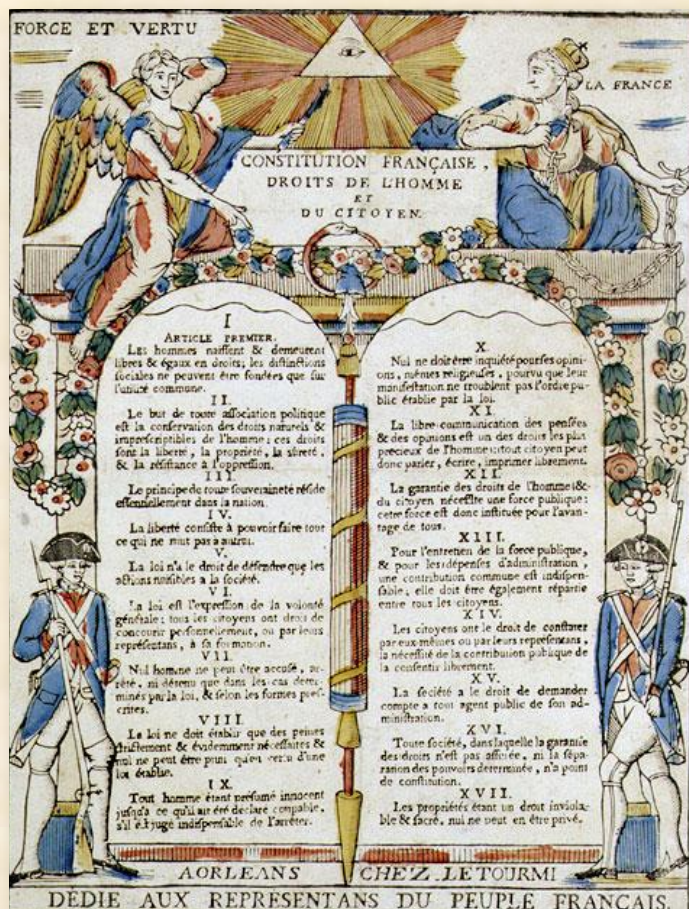 FORCE ET VERTU
LA FRANCE
CONSTITUTION FRANÇAISE,
DROITS DE L'HOMME
ET
DU CITOYEN.
I
ARTICLE PREMIER.
Les hommes naissent & demeurent
libres & égaux en droits; les distinctions
sociales ne peuvent être fondées que sur
l'utilité commune.
II.
Le but de toute association politique
est la conservation des droits naturels &
imprescriptibles de l'homme: ces droits
sont la liberté, la propriété, la sûreté,
& la résistance à l'oppression.
III.
Le principe de toute souveraineté réside
essentiellement dans la nation.
IV.
La liberté consiste à pouvoir faire tout
ce qui ne nuit pas à autrui.
V.
La loi n'a le droit de défendre que les
actions nuisibles a la société.
VI.
La loi est l'expression de la volonté
générale; tous les citoyens ont droit de
concourir personnellement, ou par leurs
représentans, à sa formation.
VII.
Nul homme ne peut être accusé, ar-
rêté, ni détenu que dans les cas déter-
minés par la loi, & selon les formes pres-
crites.
VIII.
La loi ne doit établir que des peines
strictement & évidemment nécessaites &
nul ne peut être puni qu'en vertu d'une
loi établie.
IX.
Tout homme étant présumé innocent
jusqu'a ce qu'il ait été déclaré coupable,
s'il est jugé indispensable de l'arrêter.
X.
Nul ne doit être inquiété pour ses opini-
ons, mêmes religieuses, pourvu que leur
manifestation ne troublent pas l'ordre pu-
blic établie par la loi.
XI.
La libre communication des pensées
& des opinions est un des droits les plus
precieux de l'homme: tout citoyen peut
donc parler, écrire, imprimer librement.
XII.
La garantie des droits de l'homme &
du citoyen nécessite une force publique:
cete force est donc instituée pour l'avan-
tage de tous.
XIII.
Pour l'entretien de la force publique,
& pour les dépenses d'administration,
une contribution commune est indispen-
sable; elle doit être également répartie
entre tous les citoyens.
XIV.
Les citoyens ont le droit de constater
par eux-mêmes ou par leurs representans,
la nécessité de la contribution publique de
la consentir librement.
XV.
La société a le droit de demander
compte a tout agent public de son ad-
ministration.
XVI.
Toute société, dans laquelle la garantie
des droits n'est pas assurée, ni la sépa-
ration des pouvoirs determinée, n'a point
de constitution.
XVII.
Les propriétés étant un droit inviola-
ble & sacré, nul ne peut en être privé.
A ORLEANS CHEZ LETOURMI
DÉDIE AUX REPRÉSENTANS DU PEUPLE FRANCAIS.